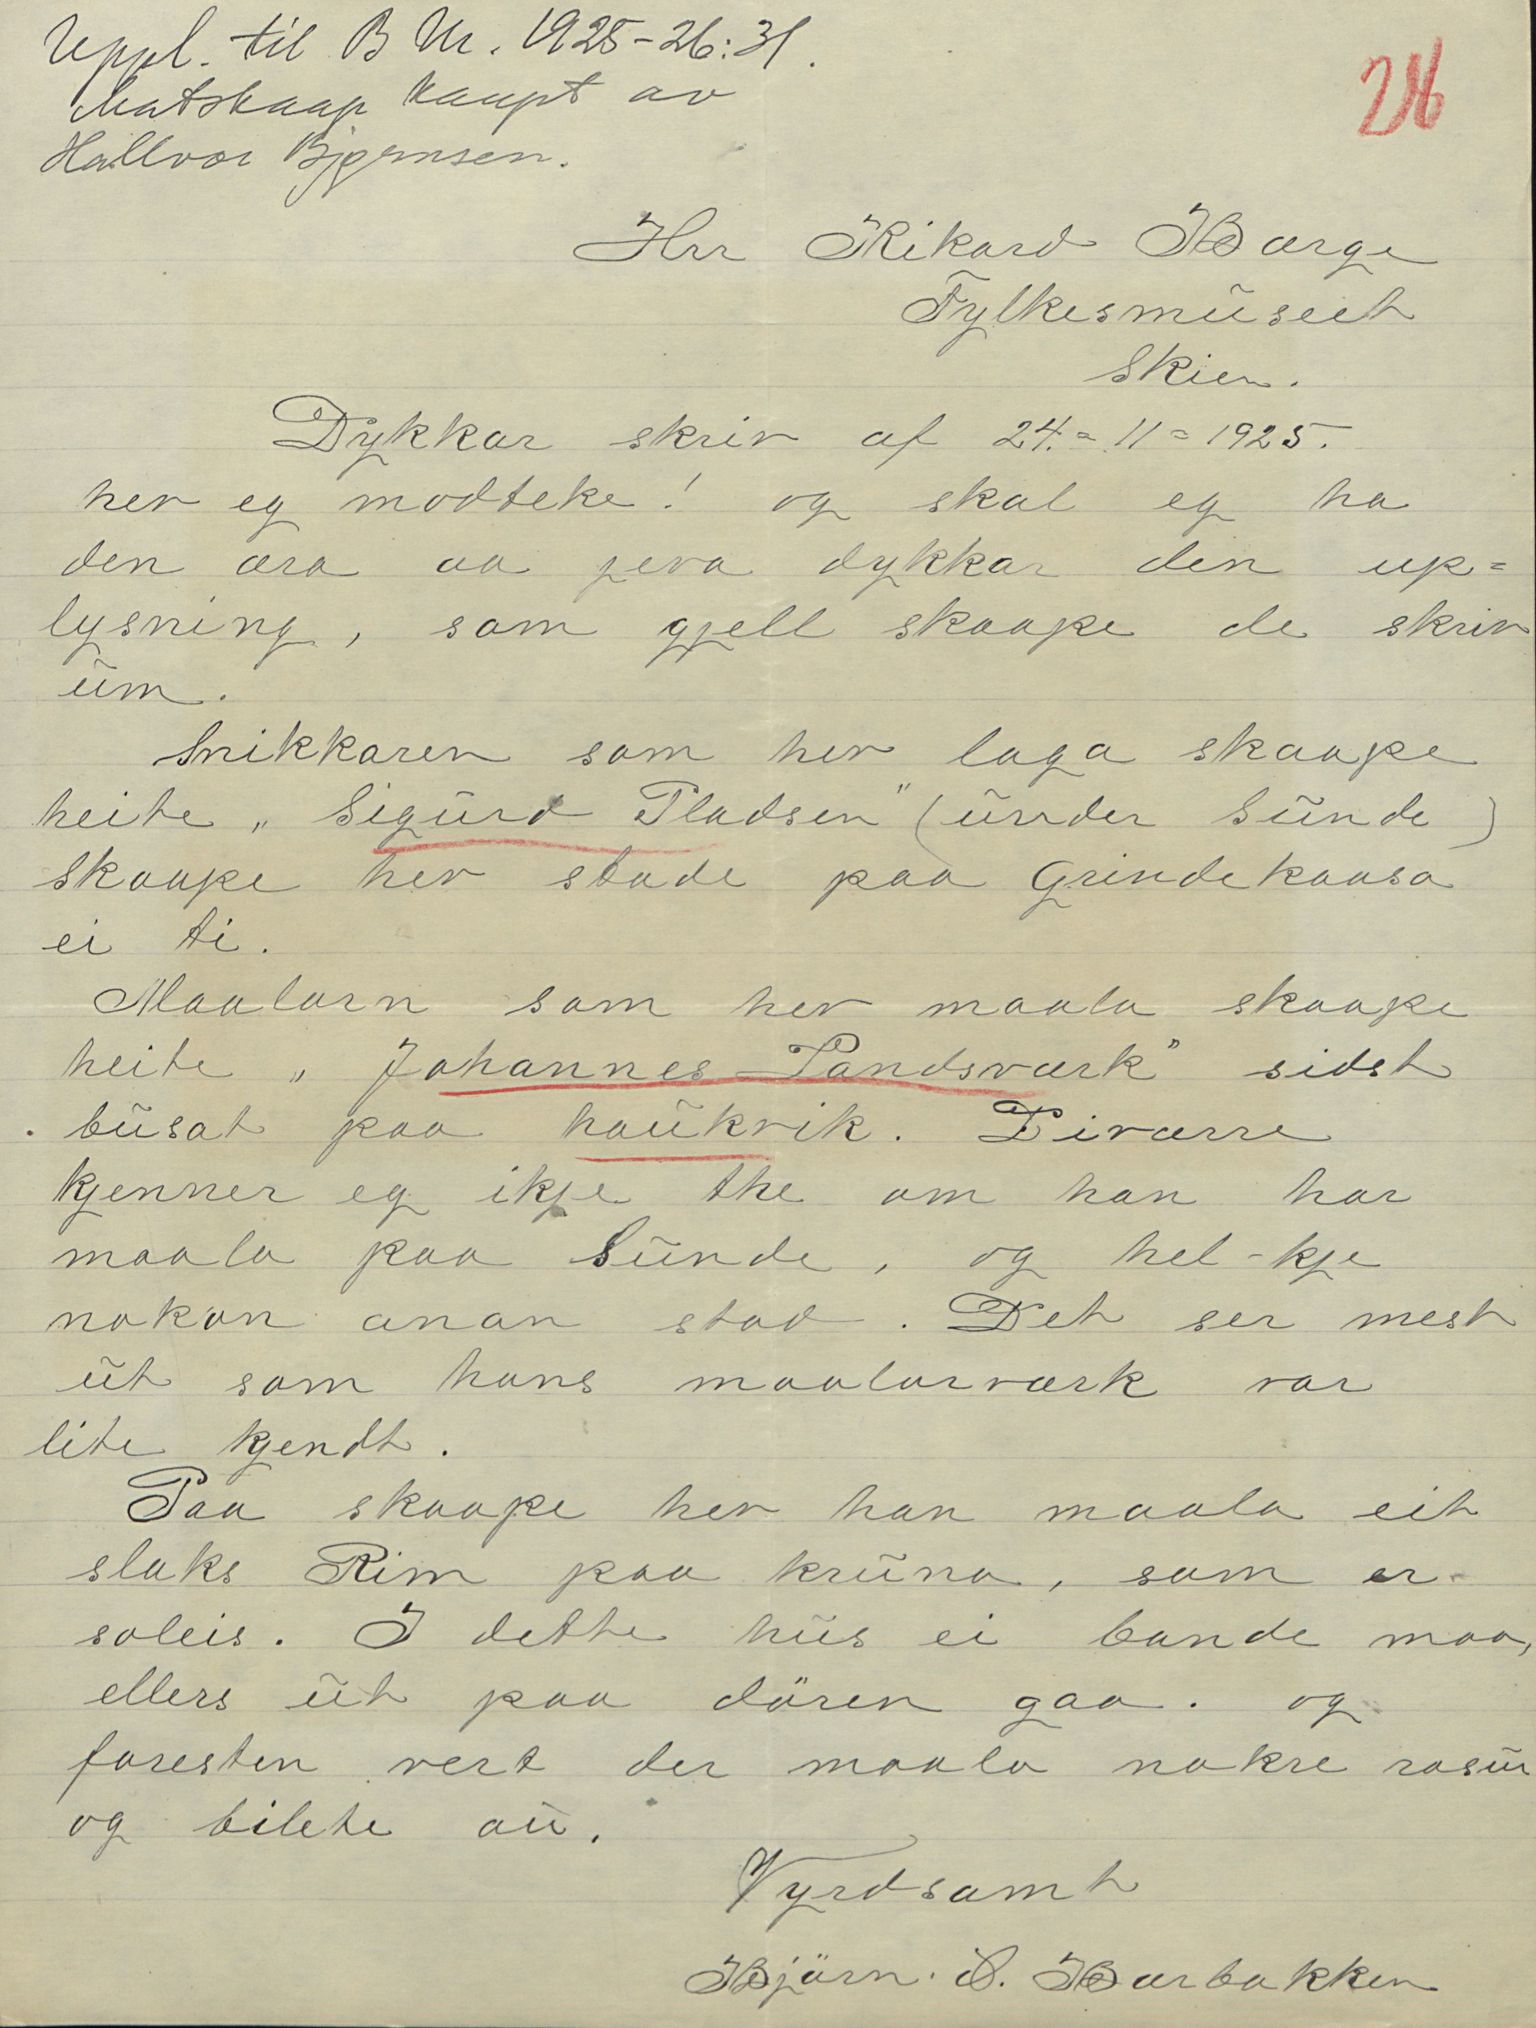 Uppl. til B M. 1925-26:31.
Matskaap kaupt av
Hallvor Bjørnsen.
26
Hrr Rikard Berge
Fylkesmŭseet
Skien.
Dykkar skriv af 24.=11=1925.
hev eg modteke! og skal eg ha
den æra aa jeva dykkar den up=
lysning, som gjell skaape de skriv
ŭm.
Snikkaren som hev laga skaape
heite „Sigŭrd Pladsen" (ŭnder Sŭnde)
Skaape hev stade paa Grindekaasa
ei ti.
Maalarn som hev maala skaape
heite „Johannes Landsværk" sidst
bŭsat paa haŭkvik. Diværre
kjenner eg ikje the om han har
maala paa Sŭnde, og hel-kje
nokon anan stad. Det ser mest
ŭt som hans maalarværk var
lite kjendt.
Paa skaape hev han maala eit
slaks Rim paa krŭna, som er
soleis. I dette hŭs ei bande maa,
ellers ŭt paa dören gaa. og
foresten vert der maala nokre rosŭr
og bilete aŭ.
Vyrdsamt
Björn. S. Barbakken